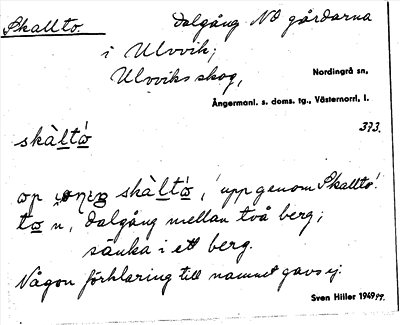 Skallto. dalgång NO gårdarna
i Ulvvik;
Ulvviks skog,
Nordingrå sn,
Ångermanl. s. doms. tg., Västernorrl. l.
373.
skàltó̀
op skàltó̀, 'upp genom Skallto'.
to n, dalgång mellan två berg;
sänka i ett berg.
Någon förklaring till namnet gavs ej.
Sven Hiller 1949